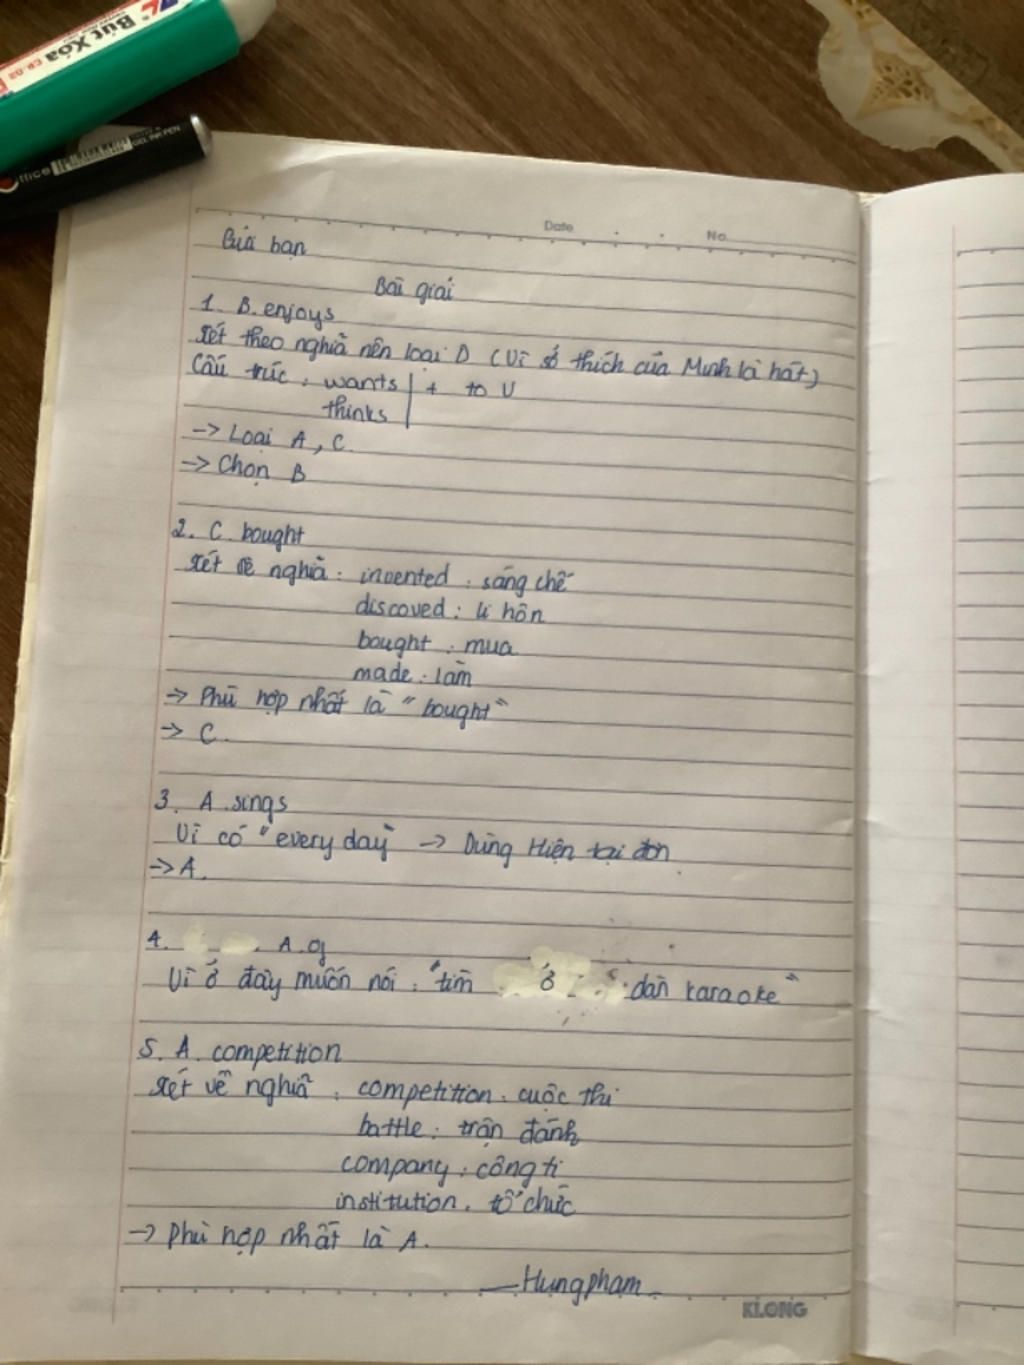 Bút Xóa CR-02
ffice GEL INK PEN
Date No
Của bạn
Bài giải
1. B. enjoys
Xét theo nghĩa nên loại D (Vì sở thích của Minh là hát)
Cấu trúc: wants + to V
thinks
-> Loại A, C.
-> Chọn B
2. C. bought
Xét về nghĩa: invented: sáng chế
discoved: li hôn
bought: mua
made: làm
-> Phù hợp nhất là "bought"
-> C.
3. A. sings
Vì có "every day" -> Dùng Hiện tại đơn
-> A.
4. A. of
Vì ở đây muốn nói: "tìm ở dàn karaoke"
5. A. competition
Xét về nghĩa: competition: cuộc thi
battle: trận đánh
company: công ti
institution: tổ chức
-> Phù hợp nhất là A.
—Hungpham—
KLONG